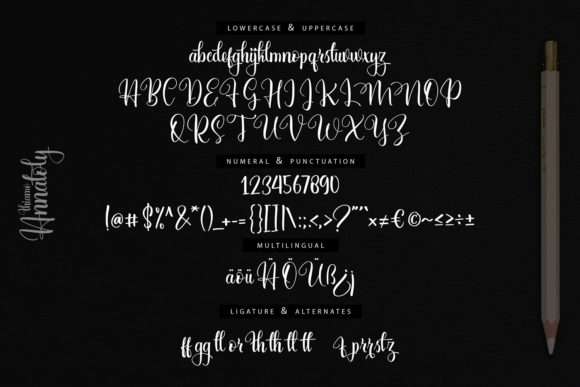 LOWERCASE & UPPERCASE
abcdefghijklmnopqrstuvwxyz
ABCDEFGHIJKLMNOP
QRSTUVWXYZ
NUMERAL & PUNCTUATION
1234567890
!@#$%^&*()_+-={}[]|\:;<,>?"'×≠€©~≤≥÷±
MULTILINGUAL
äöüÄÖÜß¿¡
LIGATURE & ALTERNATES
ff gg tt or th th tt tt
Annatoly